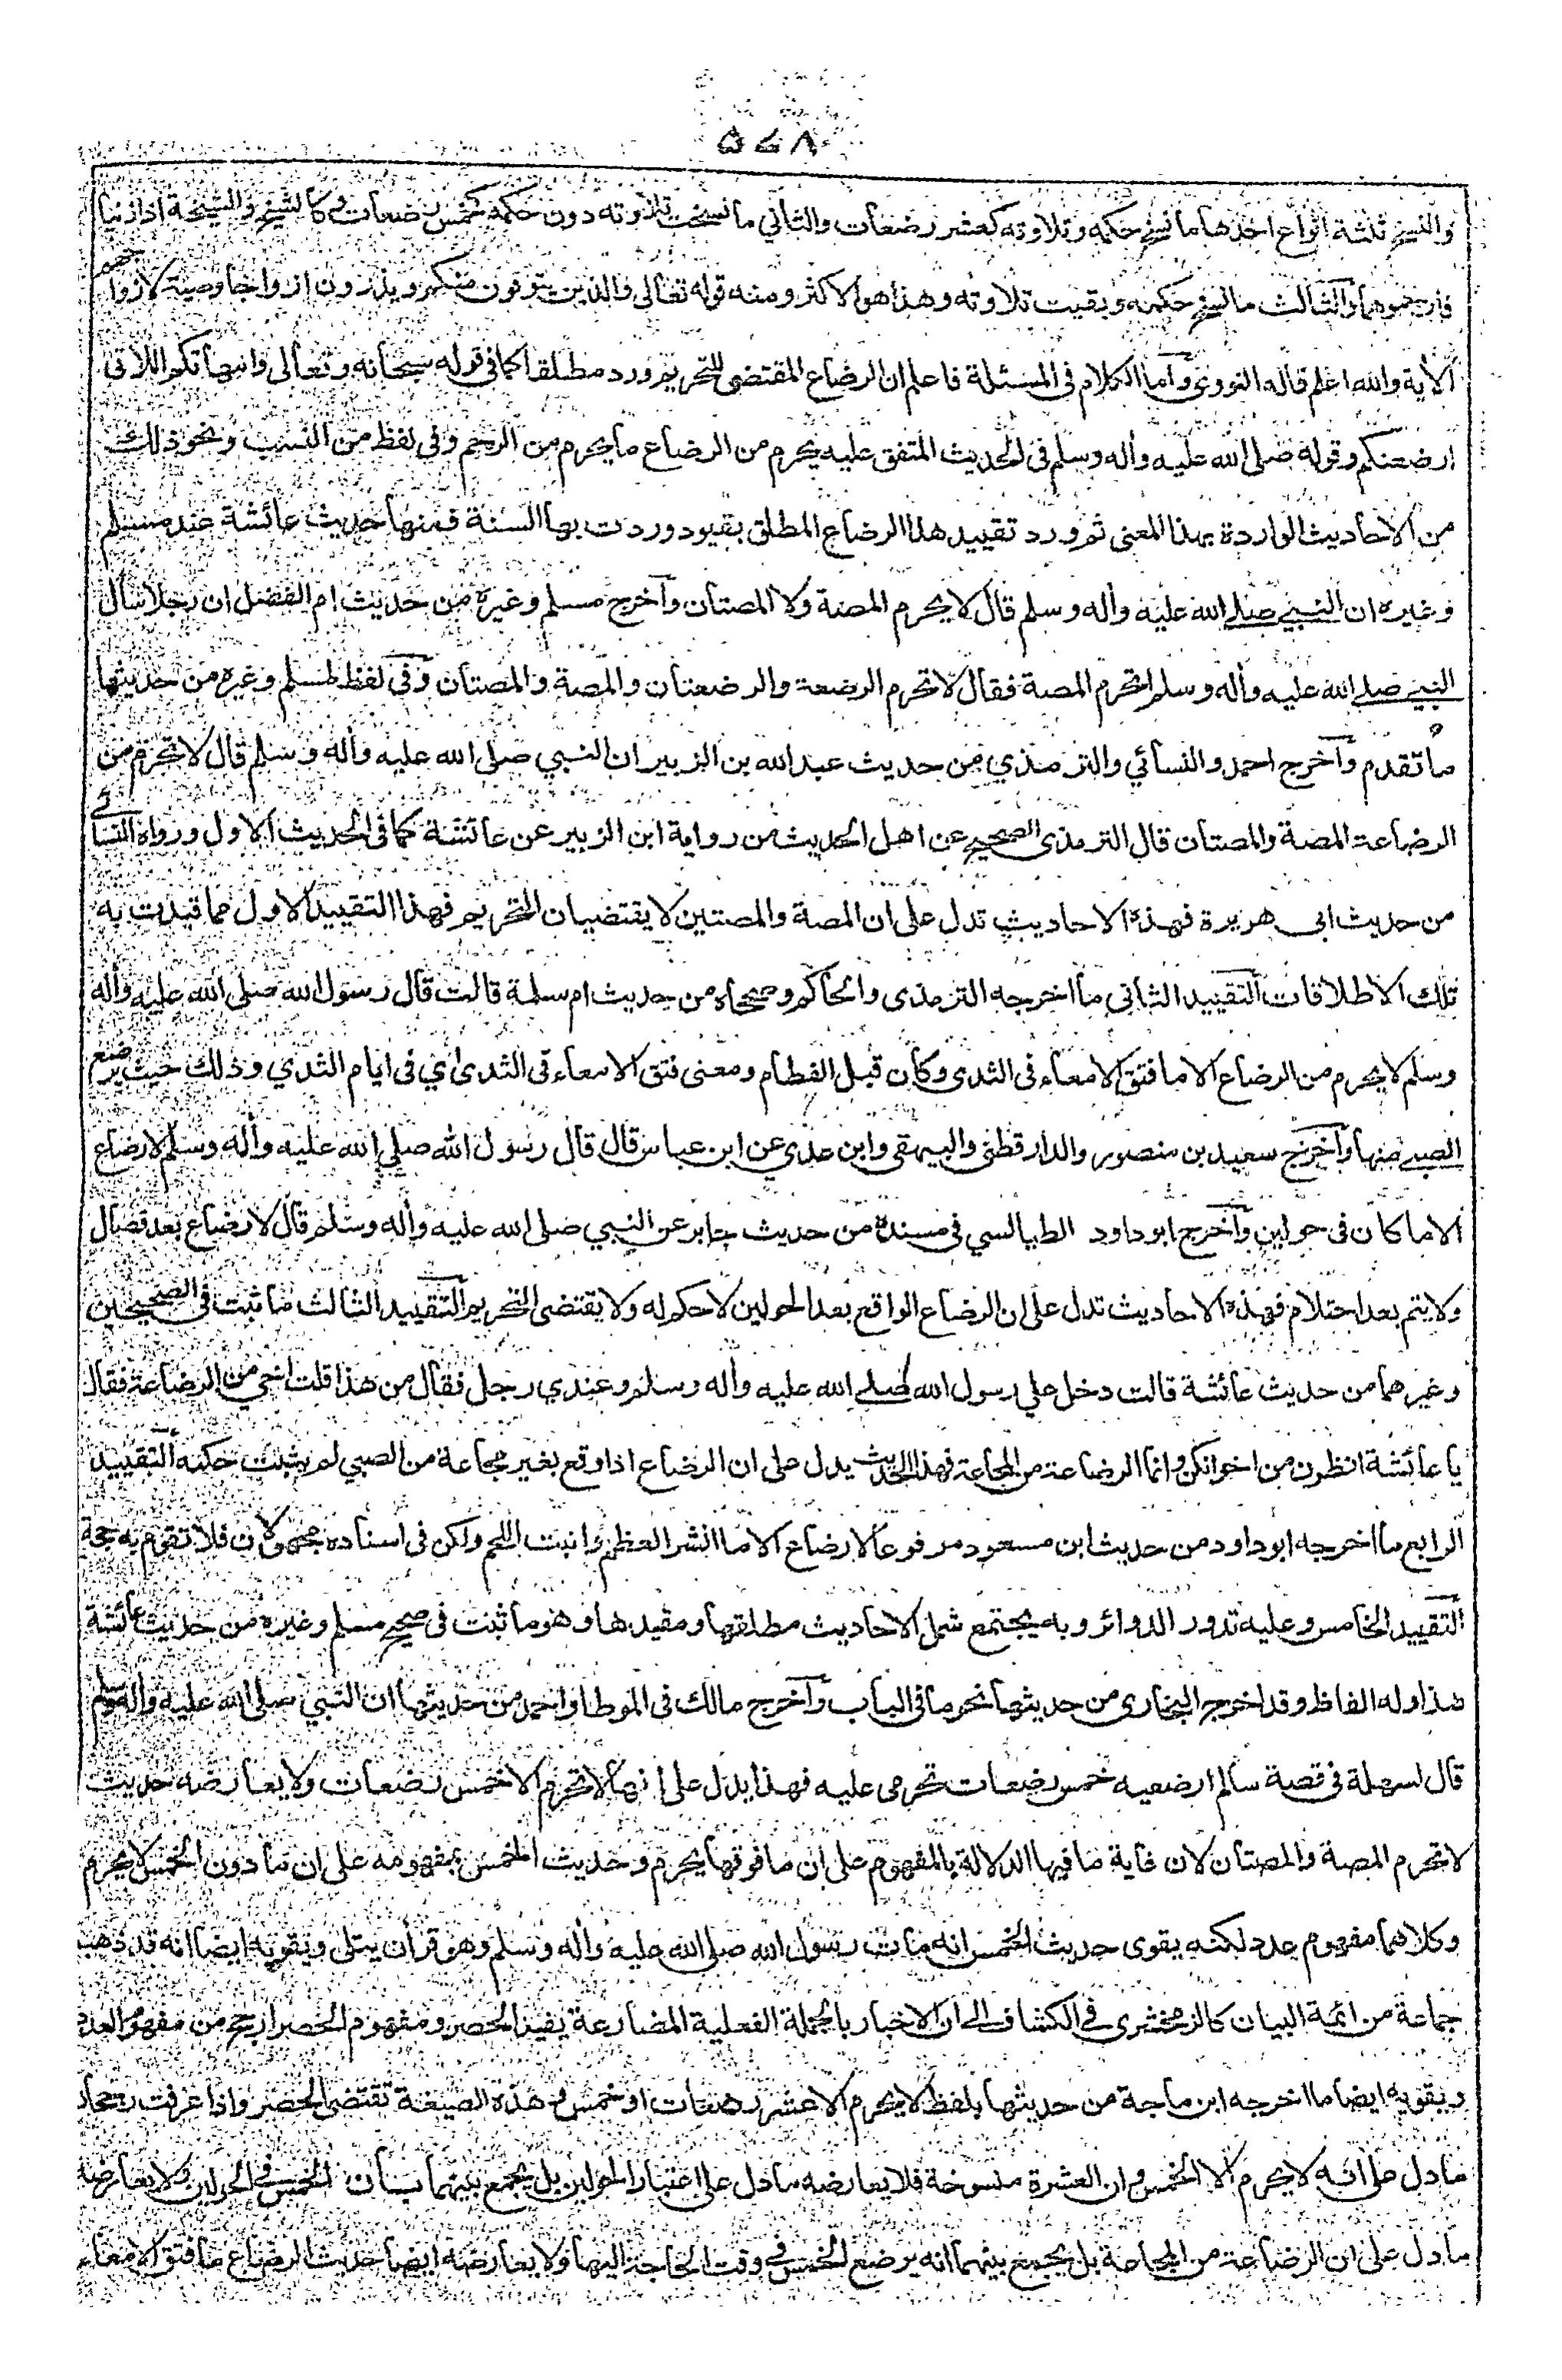 ۵۶۸
والنسخ ثلثة انواع احدها ما نسخ حكمه وتلاوته كعشر رضعات والثاني ما نسخت تلاوته دون حكمه كخمس رضعات وكالشيخ والشيخة اذا زنيا
فارجموهما والثالث ما نسخ حكمه وبقيت تلاوته وهذا هو الاكثر ومنه قوله تعالى والذين يتوفون منكم ويذرون ازواجا وصية لازواجهم
الآية والله اعلم قاله النووي وأما الكلام فى المسئلة فاعلم ان الرضاع المقتضى للتحريم ورد مطلقا كما فى قوله سبحانه وتعالى وامهاتكم اللاتى
ارضعنكم وقوله صلى الله عليه وأله وسلم فى الحديث المتفق عليه يحرم من الرضاع ما يحرم من الرحم وفى لفظ من النسب ونحو ذلك
من الاحاديث الواردة بهذا المعنى ثم ورد تقييد هذا الرضاع المطلق بقيود وردت بها السنة فمنها حديث عائشة عند مسلم
وغيره ان النبي صلى الله عليه وأله وسلم قال لا يحرم المصة ولا المصتان وآخرج مسلم وغيره من حديث ام الفضل ان رجلا سأل
النبي صلى الله عليه وأله وسلم اتحرم المصة فقال لا تحرم الرضعة والرضعتان والمصة والمصتان وفى لفظ لمسلم وغيره من حديثها
ما تقدم وآخرج احمد والنسائي والترمذي من حديث عبد الله بن الزبير ان النبي صلى الله عليه وأله وسلم قال لا تحرم من
الرضاعة المصة والمصتان قال الترمذى الصحيح عن اهل الحديث من رواية ابن الزبير عن عائشة كما فى الحديث الاول ورواه النسائي
من حديث ابى هريرة فهذه الاحاديث تدل على ان المصة والمصتين لا يقتضيان التحريم فهذا التقييد الاول مما قيدت به
تلك الاطلاقات التقييد الثانى ما اخرجه الترمذى والحاكم وصححاه من حديث ام سلمة قالت قال رسول الله صلى الله عليه وأله
وسلم لا يحرم من الرضاع الا ما فتق الامعاء فى الثدى وكان قبل الفطام ومعنى فتق الامعاء فى الثدى اي فى ايام الثدي وذلك حيث يرضع
الصبي منها وآخرج سعيد بن منصور والدارقطني والبيهقى وابن عدي عن ابن عباس قال قال رسول الله صلى الله عليه وأله وسلم لا رضاع
الا ما كان فى حولين وآخرج ابو داود الطيالسي فى مسنده من حديث جابر عن النبي صلى الله عليه وأله وسلم قال لا رضاع بعد فصال
ولا يتم بعد احتلام فهذه الاحاديث تدل على ان الرضاع الواقع بعد الحولين لا حكم له ولا يقتضى التحريم التقييد الثالث ما ثبت فى الصحيحين
وغيرهما من حديث عائشة قالت دخل علي رسول الله صلى الله عليه وأله وسلم وعندي رجل فقال من هذا قلت اخي من الرضاعة فقال
يا عائشة انظرن من اخوانكن وانما الرضاعة من المجاعة فهذا الحديث يدل على ان الرضاع اذا وقع بغير مجاعة من الصبي لم يثبت حكمه التقييد
الرابع ما اخرجه ابو داود من حديث ابن مسعود مرفوعا لا رضاع الا ما انشر العظم وانبت اللحم ولكن فى اسناده مجهولان فلا تقوم به حجة
التقييد الخامس وعليه تدور الدوائر وبه يجتمع شمل الاحاديث مطلقها ومقيدها وهو ما ثبت فى صحيح مسلم وغيره من حديث عائشة
هذا وله الفاظ وقد اخرج البخارى من حديثها نحو ما فى الباب وآخرج مالك فى الموطا واحمد من حديثها ان النبي صلى الله عليه وأله وسلم
قال لسهلة فى قصة سالم ارضعيه خمس رضعات تحرمى عليه فهذا يدل على انها لا تحرم الا خمس رضعات ولا يعارضه حديث
لا تحرم المصة والمصتان لان غاية ما فيها الدلالة بالمفهوم على ان ما فوقها يحرم وحديث الخمس بمفهومه على ان ما دون الخمس لا يحرم
وكلاهما مفهوم عدد لكنه يقوى حديث الخمس انه مات رسول الله صلى الله عليه وأله وسلم وهو قرأن يتلى ويقويه ايضا انه قد ذهب
جماعة من ائمة البيان كالزمخشرى فى الكشاف الى ان الاخبار بالجملة الفعلية المضارعة يفيد الحصر ومفهوم الحصر ارجح من مفهوم العدد
ويقويه ايضا ما اخرجه ابن ماجة من حديثها بلفظ لا يحرم الا عشر رضعات او خمس وهذه الصيغة تقتضى الحصر واذا عرفت
ما دل على انه لا يحرم الا الخمس وان العشرة منسوخة فلا يعارضه ما دل على اعتبار الحولين بل يجمع بينهما بسأن الخمس فى الحولين ولا يعارضه
ما دل على ان الرضاعة من المجاعة بل يجمع بينهما انه يرضع الخمس فى وقت الحاجة اليها ولا يعارضه ايضا حديث الرضاع ما فتق الامعاء